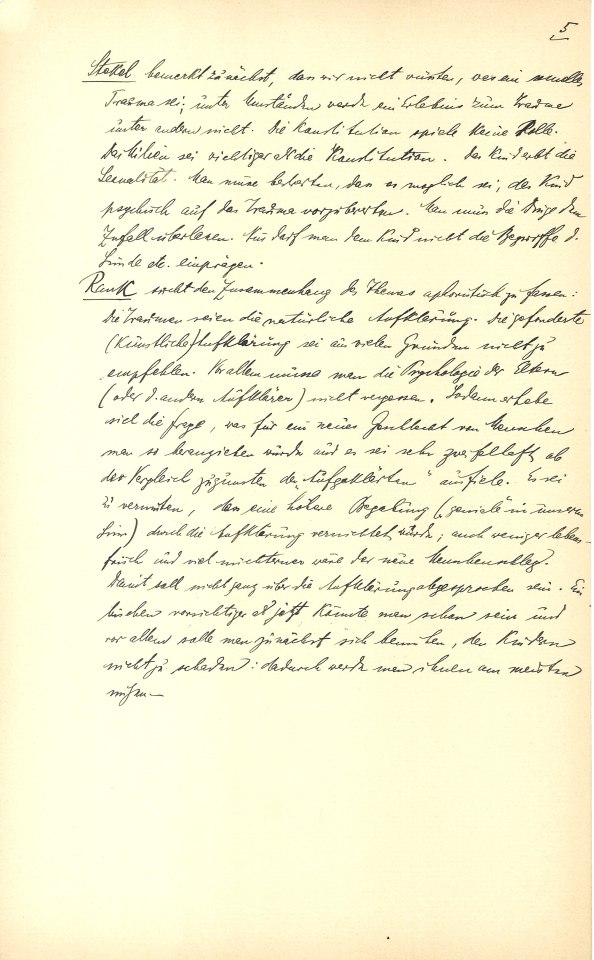 5
Stekel bemerkt zunächst, dass wir nicht wüssten, was ein sexuelles
Trauma sei; unter Umständen werde ein Erlebnis zum Trauma
unter andern nicht. Die Konstitution spiele keine Rolle.
Das Milieu sei wichtiger als die Konstitution. Das Kind erbt die
Sexualität. Man müsse bedenken, dass es möglich sei, das Kind
psychisch auf das Trauma vorzubereiten. Man muss die Dinge dem
Zufall überlassen. Nur darf man dem Kind nicht die Begriffe d.
Sünde etc. einprägen.
Rank sucht den Zusammenhang des Themas aphoristisch zu fassen:
Die Traumen seien die natürliche Aufklärung. Die geforderte
(künstliche) Aufklärung sei aus vielen Gründen nicht zu
empfehlen. Vor allem müsse man die Psychologie der Eltern
(oder d. andern Aufklärer) nicht vergessen. Sodann erhebe
sich die Frage, was für ein neues Geschlecht von Menschen
man so heranziehen würde und es sei sehr zweifelhaft, ob
der Vergleich zugunsten der „Aufgeklärten" ausfiele. Es sei
zu vermuten, dass eine höhere Begabung („geniale" in unserem
Sinn) durch die Aufklärung vernichtet würde; auch weniger lebens-
frisch und viel nüchterner wäre der neue Menschenschlag.
Damit soll nicht ganz über die Aufklärung abgesprochen sein. Ein
bischen vorsichtiger als jetzt könnte man schon sein und
vor allem solle man zunächst sich bemühen, den Kindern
nicht zu schaden: dadurch werde man ihnen am meisten
nützen.—